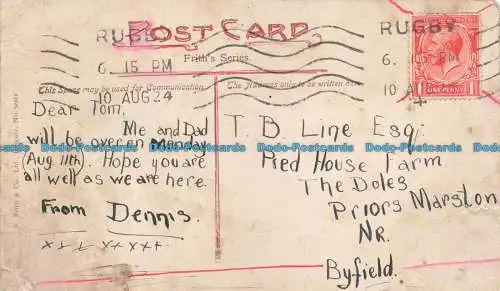 RUGBY
POST CARD
RUGBY
Frith's Series.
6. 15 PM
6. 15 PM
This Space may be used for Communication
The Address only to be written here
10 AUG 24
10 AU
ONE PENNY
Dear Tom,
Me and Dad
will be over on Monday
(Aug. 11th). Hope you are
all well as we are here.
From Dennis.
x x x x x x x
T. B Line Esq.
Red House Farm
The Doles
Priors Marston
Nr.
Byfield.
Dodo-Postcards Dodo-Postcards Dodo-Postcards